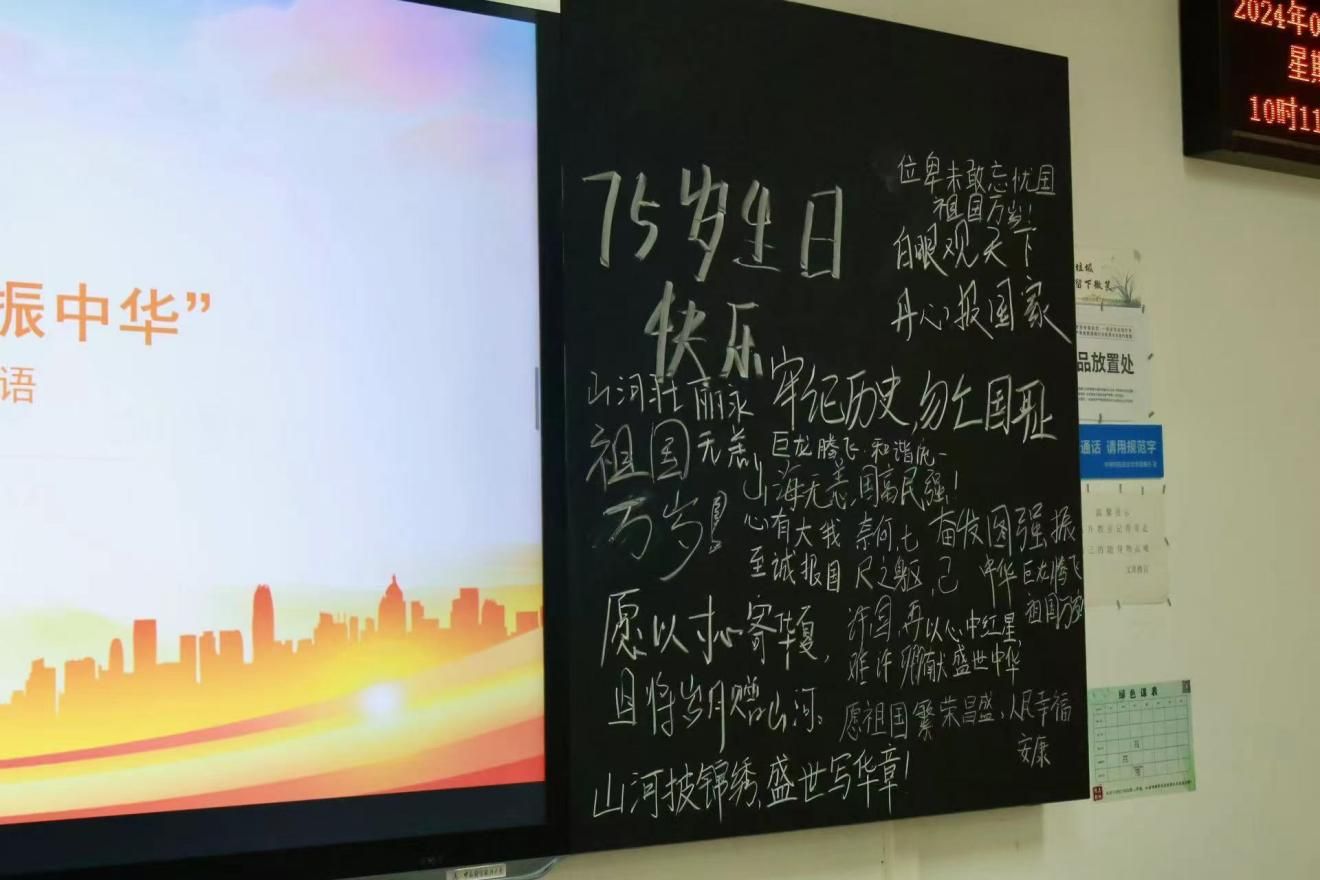 振中华”
语
2024年0
星期
10时11
75岁生日
快乐
位卑未敢忘忧国
祖国万岁!
白眼观天下
丹心报国家
山河壮丽永
无恙
祖国
万岁!
牢记历史,勿亡国耻
巨龙腾飞·和谐统一
山海无恙,国富民强!
心有大我
至诚报国
奈何七
尺之躯,已
许国,再
难许卿
奋发图强振
中华
巨龙腾飞
祖国万岁
以心中红星,
献盛世中华
愿以寸心寄华夏,
且将岁月赠山河。
愿祖国繁荣昌盛、人民幸福
安康
山河披锦绣,盛世写华章!
垃圾
留下微笑
品放置处
通话 请用规范字
温馨提示
绿色课表